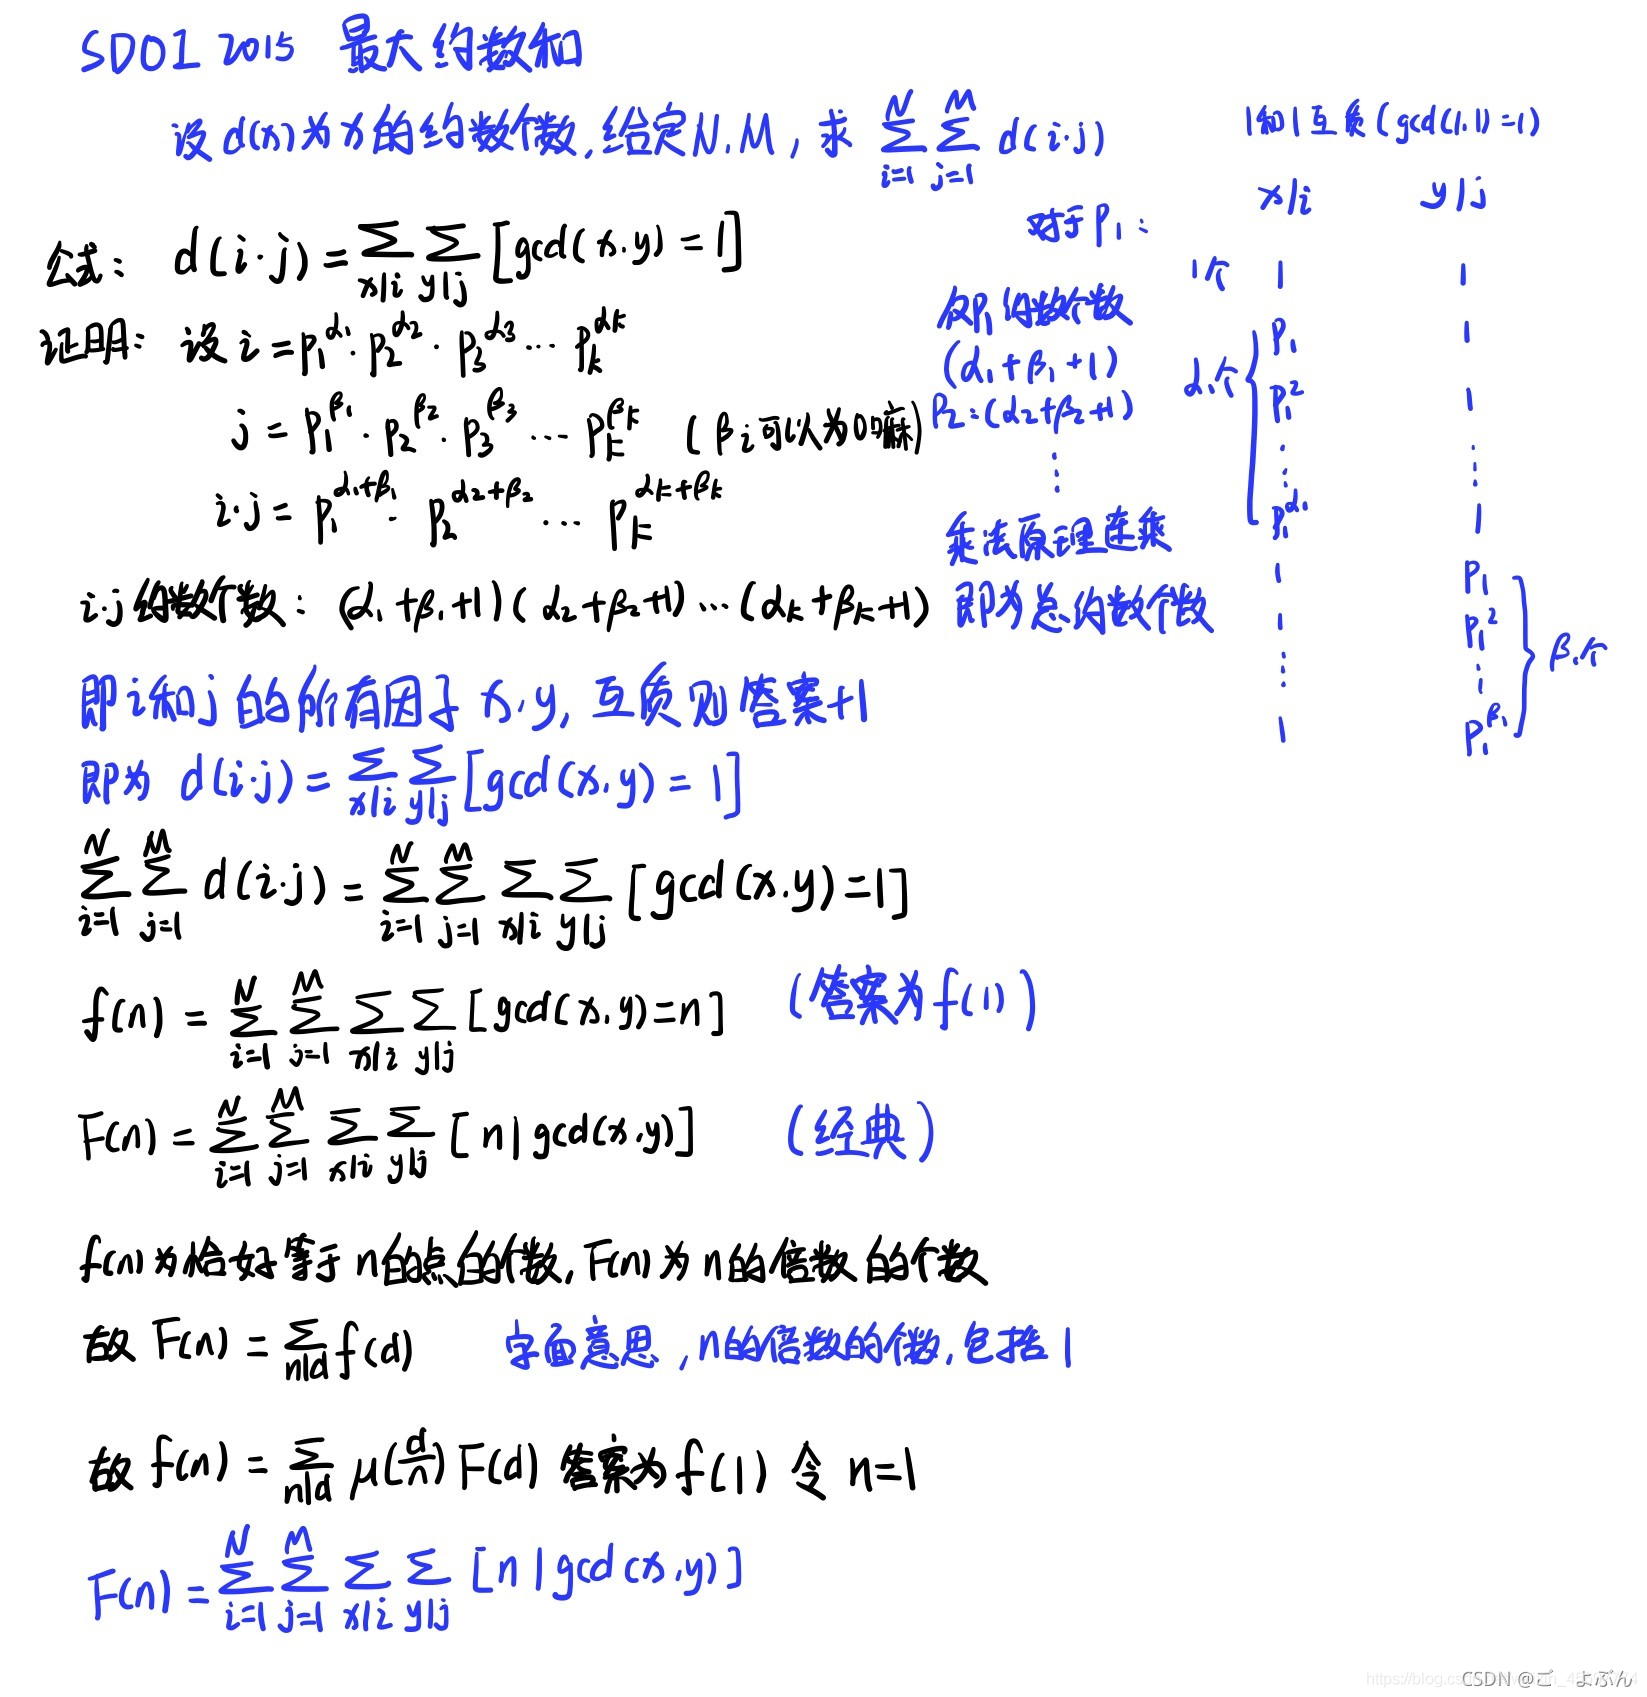 SDOI 2015 最大约数和
设d(x)为x的约数个数,给定N.M,求 ∑_{i=1}^{N} ∑_{j=1}^{M} d(i·j)
1和1互质(gcd(1.1)=1)
公式: d(i·j)=∑_{x|i} ∑_{y|j} [gcd(x.y)=1]
证明: 设 i=p₁^{α₁}·p₂^{α₂}·p₃^{α₃}…p_k^{α_k}
j=p₁^{β₁}·p₂^{β₂}·p₃^{β₃}…p_k^{β_k} (βi可以为0嘛)
i·j=p₁^{α₁+β₁}·p₂^{α₂+β₂}…p_k^{α_k+β_k}
i·j约数个数: (α₁+β₁+1)(α₂+β₂+1)…(α_k+β_k+1)
对于P₁:
P₁约数个数
(α₁+β₁+1)
P₂:(α₂+β₂+1)
⋮
乘法原理连乘
即为总约数个数
x|i y|j
1个 1 1
P₁ 1
α₁个 P₁² 1
⋮ ⋮
P₁^{α₁} 1
1 P₁
1 P₁² β₁个
⋮ ⋮
1 P₁^{β₁}
即i和j的所有因子x.y,互质则答案+1
即为 d(i·j)=∑_{x|i} ∑_{y|j} [gcd(x.y)=1]
∑_{i=1}^{N} ∑_{j=1}^{M} d(i·j)=∑_{i=1}^{N} ∑_{j=1}^{M} ∑_{x|i} ∑_{y|j} [gcd(x.y)=1]
f(n)=∑_{i=1}^{N} ∑_{j=1}^{M} ∑_{x|i} ∑_{y|j} [gcd(x.y)=n] (答案为f(1))
F(n)=∑_{i=1}^{N} ∑_{j=1}^{M} ∑_{x|i} ∑_{y|j} [n|gcd(x.y)] (经典)
f(n)为恰好等于n的点的个数,F(n)为n的倍数的个数
故 F(n)=∑_{n|d} f(d) 字面意思,n的倍数的个数,包括1
故 f(n)=∑_{n|d} μ(d/n)F(d) 答案为f(1) 令 n=1
F(n)=∑_{i=1}^{N} ∑_{j=1}^{M} ∑_{x|i} ∑_{y|j} [n|gcd(x.y)]
CSDN @ご よぶん